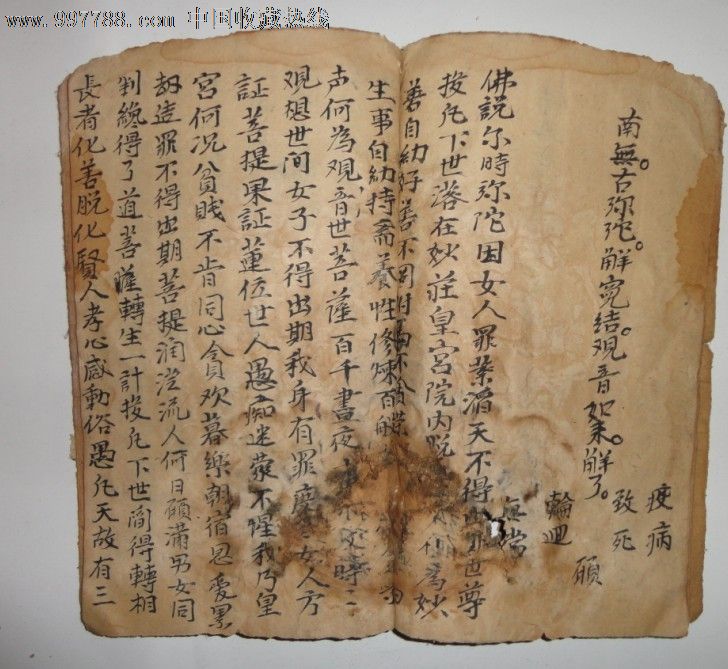 www.997788.com 中国收藏热线
南無。古弥陀。解寃結。观音如来。解了。
疫病
致死
願
輪迴
無當
佛說尔時弥陀因女人罪業滔天不得出世尊
投凢下世落在妙莊皇宮院内 為妙
善自幼好善不
生事自幼持斋養性修煉百
声何為观音世菩薩百千晝夜
观想世间女子不得出期我身有罪 女人方
証菩提果証蓮位世人愚痴迷蒙不惺我乃皇
宮何况貧贱不肯同心貪欢暮樂朝宿恩爱累
刼造罪不得出期菩提润澄流人何日願满男女同
判纔得了道菩薩轉生一計投凢下世阎得轉相
長者化善脱化賢人孝心感動俗愚凢天故有三